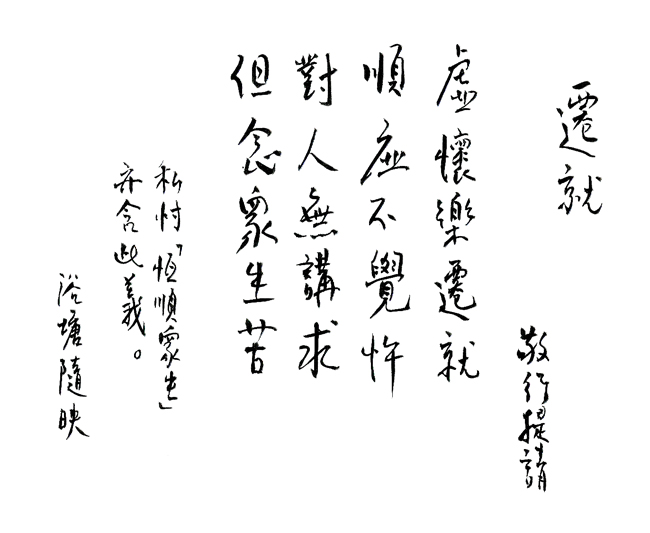 遷就
敬行提請
虛懷樂遷就
順應不覺忤
對人無講求
但念眾生苦
私忖「恆順眾生」
亦含此義。
浴塘隨映